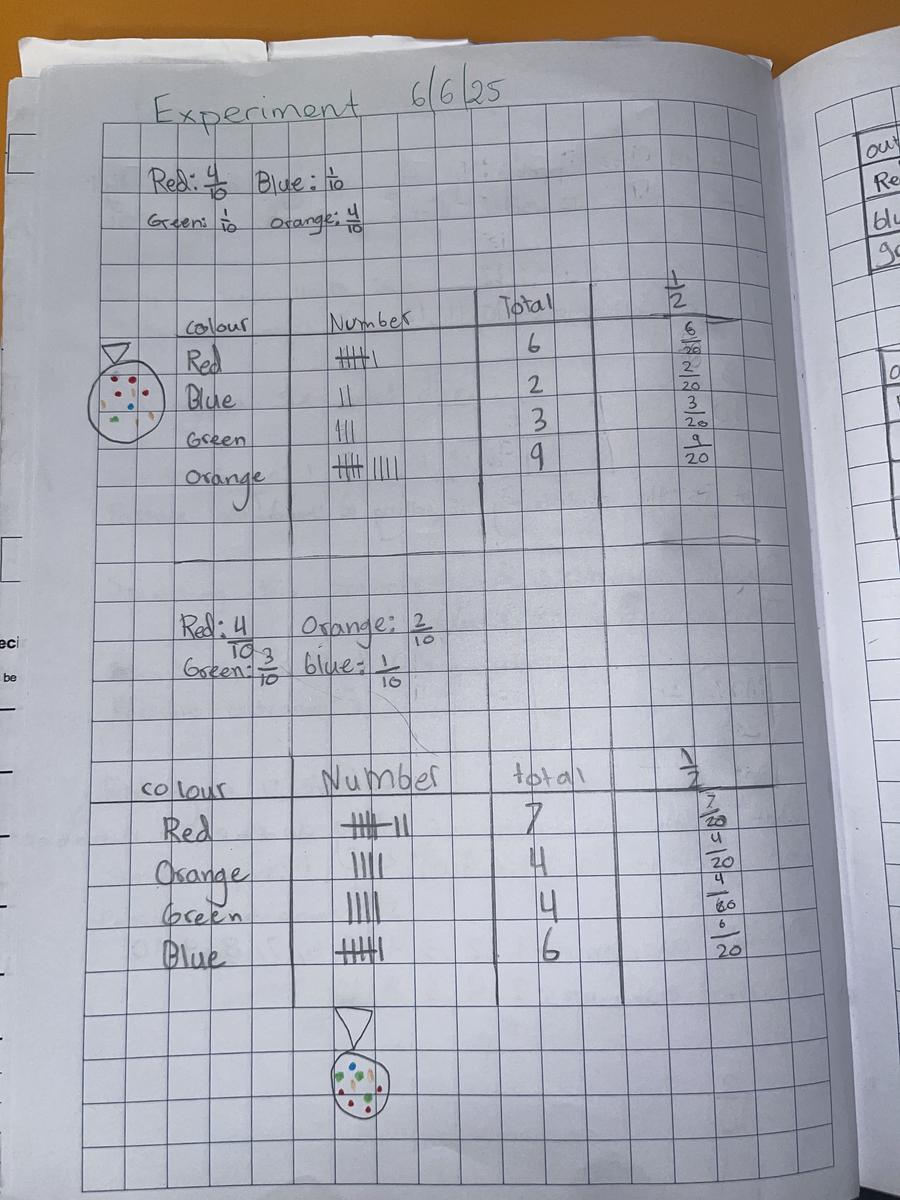 Experiment 6/6/25
Red: 4/10 Blue: 1/10
Green: 1/10 Orange: 4/10
colour Number Total 1/2
Red 6 6/20
Blue 2 2/20
Green 3 3/20
Orange 9 9/20
Red: 4/10 Orange: 2/10
Green: 3/10 blue: 1/10
colour Number total 1/2
Red 7 7/20
Orange 4 4/20
Green 4
Blue 6 6/20
out
Re
blu
eci
be